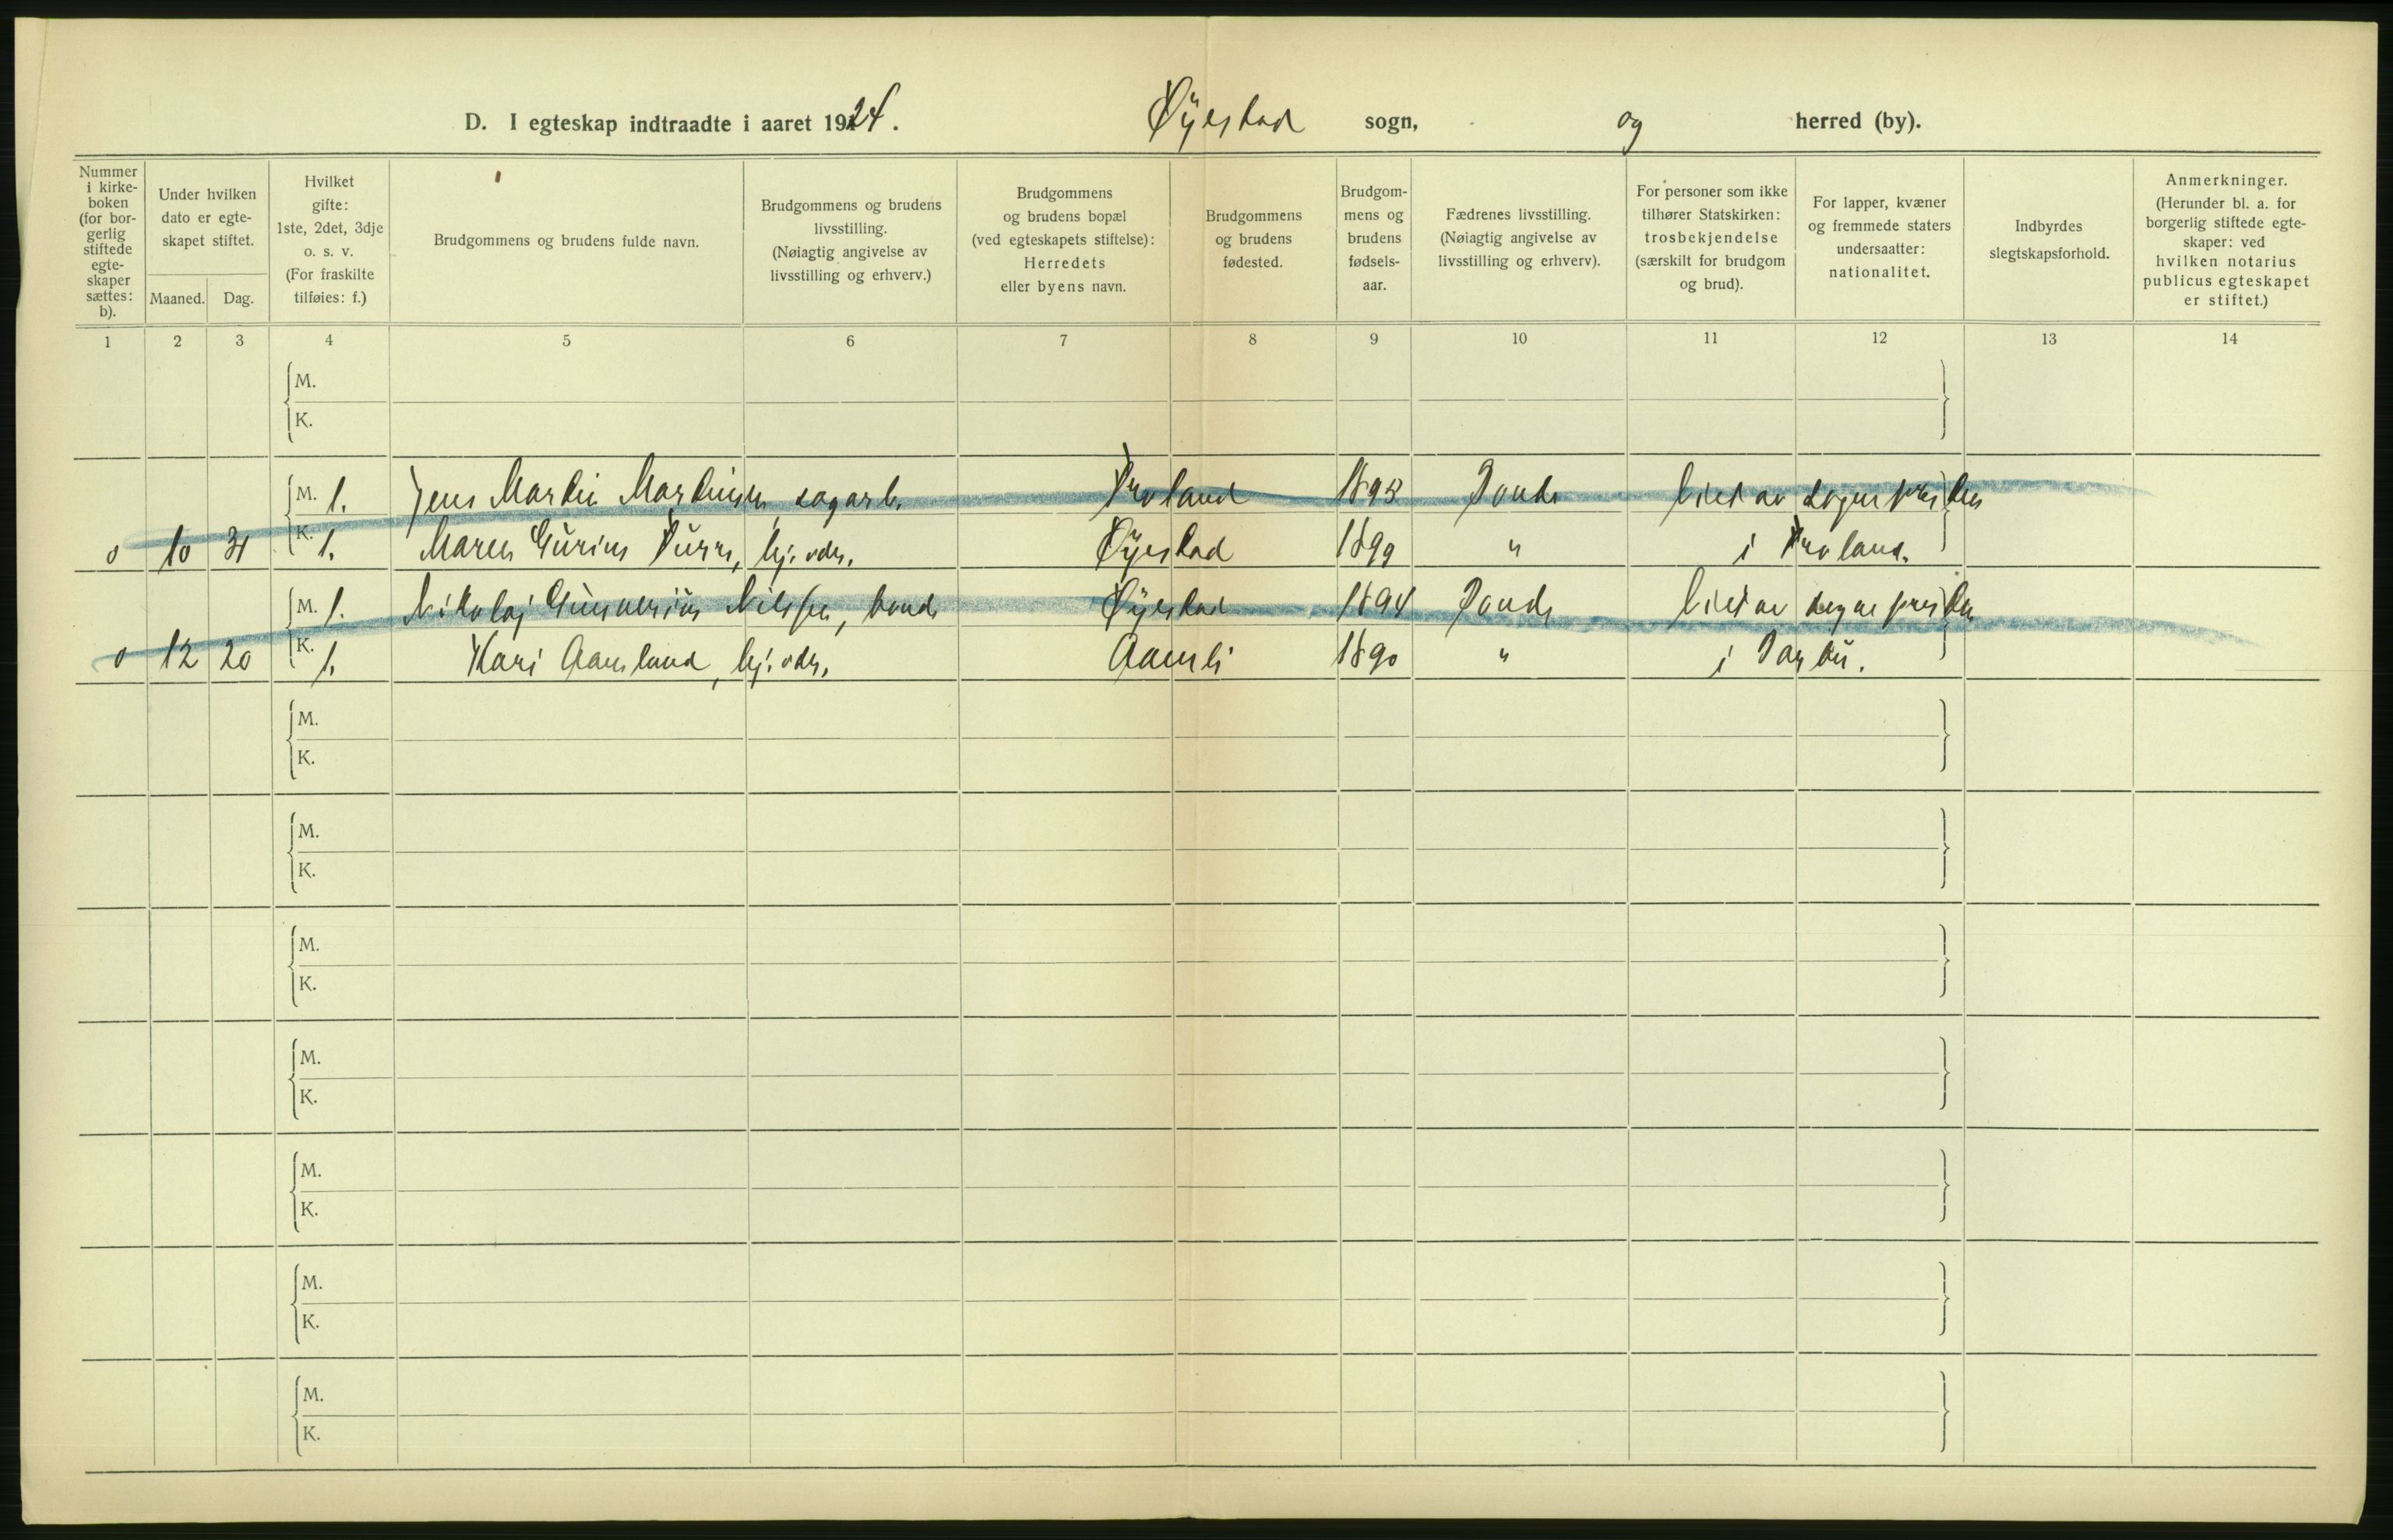 D. I egteskap indtraadte i aaret 1924. Øyestad sogn, og herred (by).
Nummer i kirke-boken (for bor-gerlig stiftede egte-skaper sættes: b).
Under hvilken dato er egte-skapet stiftet.
Maaned. Dag.
Hvilket gifte: 1ste, 2det, 3dje o. s. v. (For fraskilte tilføies: f.)
Brudgommens og brudens fulde navn.
Brudgommens og brudens livsstilling. (Nøiagtig angivelse av livsstilling og erhverv.)
Brudgommens og brudens bopæl (ved egteskapets stiftelse): Herredets eller byens navn.
Brudgommens og brudens fødested.
Brudgom-mens og brudens fødsels-aar.
Fædrenes livsstilling. (Nøiagtig angivelse av livsstilling og erhverv).
For personer som ikke tilhører Statskirken: trosbekjendelse (særskilt for brudgom og brud).
For lapper, kvæner og fremmede staters undersaatter: nationalitet.
Indbyrdes slegtskapsforhold.
Anmerkninger. (Herunder bl. a. for borgerlig stiftede egte-skaper: ved hvilken notarius publicus egteskapet er stiftet.)
1 2 3 4 5 6 7 8 9 10 11 12 13 14
M.
K.
M. 1. Jens Martin Martinsen, sagarb. Froland 1893 Bonde Viet av sognepresten
0 10 31 K. 1. Maren Gurine Furre, hj. vdr. Øyestad 1899 " i Froland.
M. 1. Nikolaj Gunnerius Nilssen, bonde Øyestad 1894 Bonde Viet av sognepresten
0 12 20 K. 1. Kari Aamland, hj. vdr. Aamli 1890 " i Barbu.
M.
K.
M.
K.
M.
K.
M.
K.
M.
K.
M.
K.
M.
K.